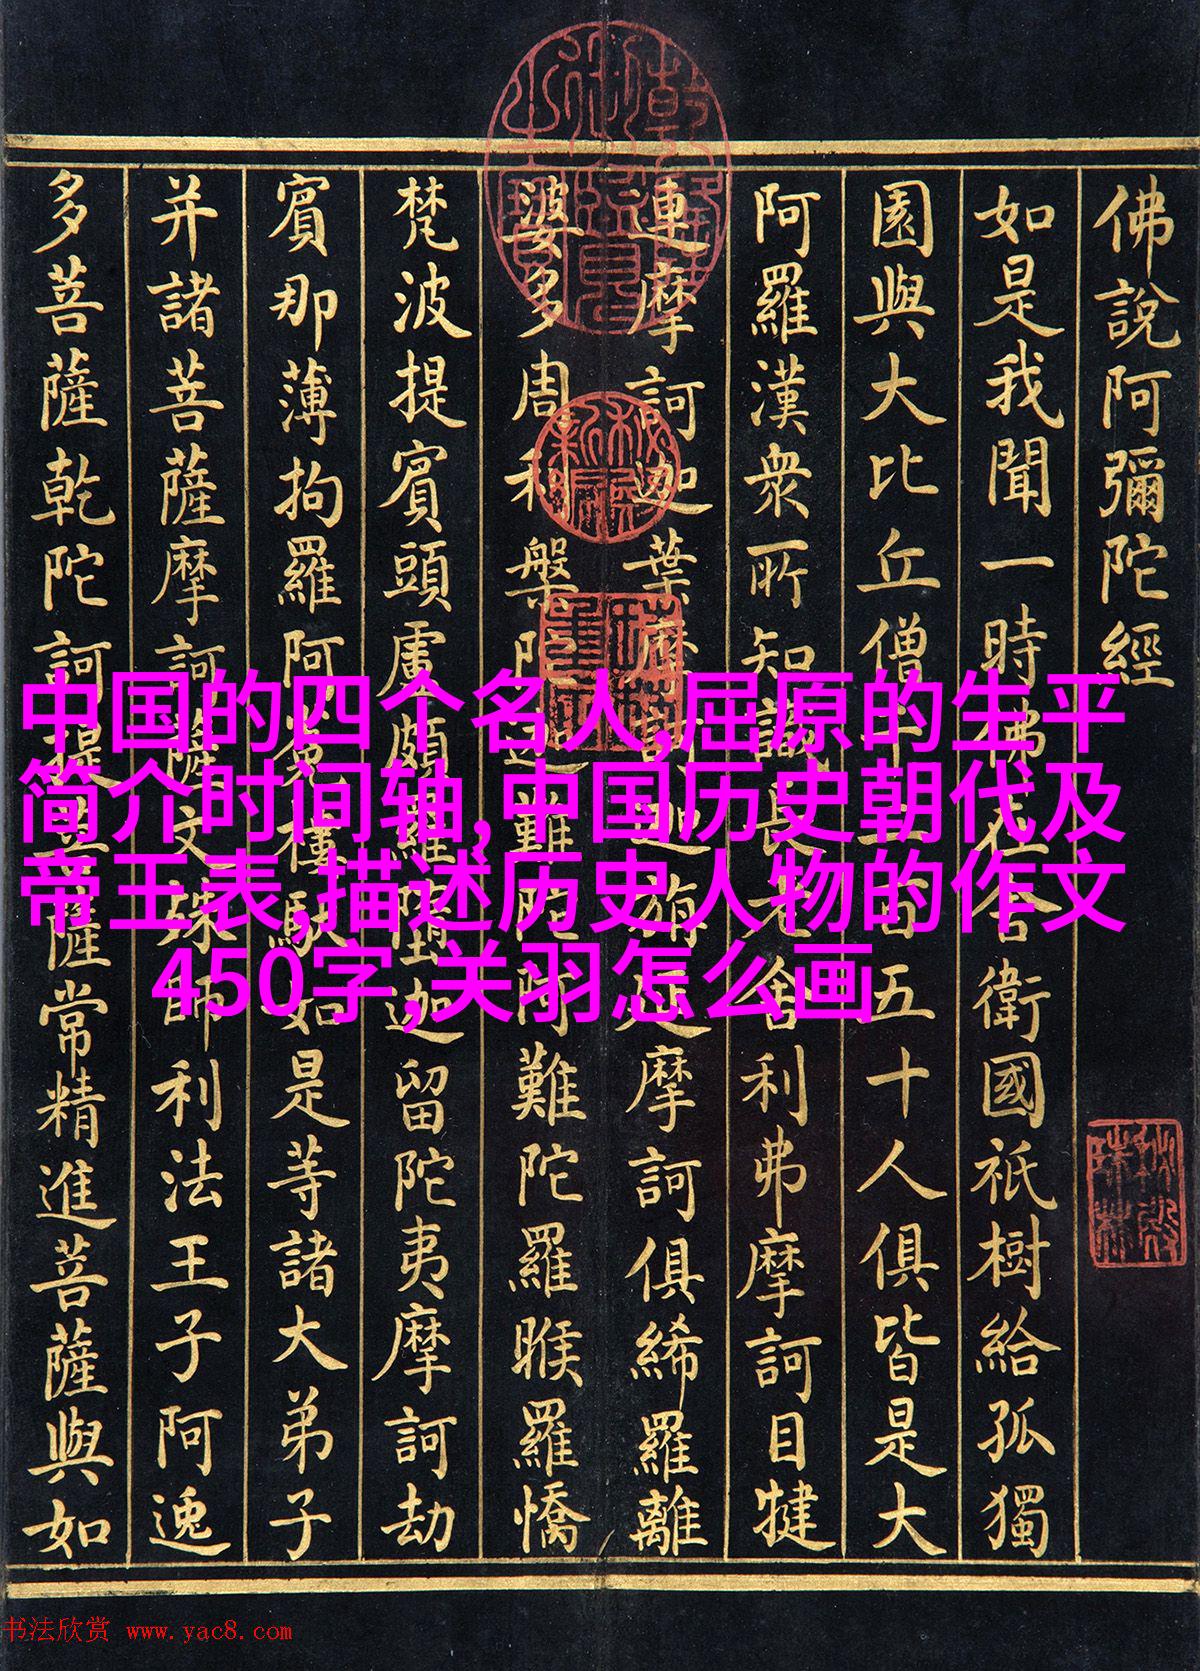 佛說阿彌陀經
如是我聞一時佛在舍衛國祇樹給孤獨
園與大比丘僧千二百五十人俱皆是大
阿羅漢衆所知識長老舍利弗摩訶目犍
連摩訶迦葉摩訶迦旃延摩訶俱絺羅離
婆多周利槃陀迦難陀阿難陀羅睺羅憍
梵波提賓頭盧頗羅墮迦留陀夷摩訶劫
賓那薄拘羅阿馱如是等諸大弟子
并諸菩薩摩訶薩文殊師利法王子阿逸
多菩薩乾陀訶提菩薩常精進菩薩與如
中国的四个名人,屈原的生平
简介时间轴,中国历史朝代及
帝王表,描述历史人物的作文
450字,关羽怎么画
书法欣赏 www.yac8.com